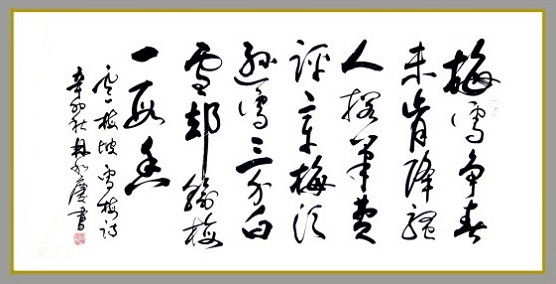 梅雪争春
未肯降骚
人搁筆费
评章梅须
逊雪三分白
雪却输梅
一段香
卢梅坡雪梅诗
辛卯秋 書